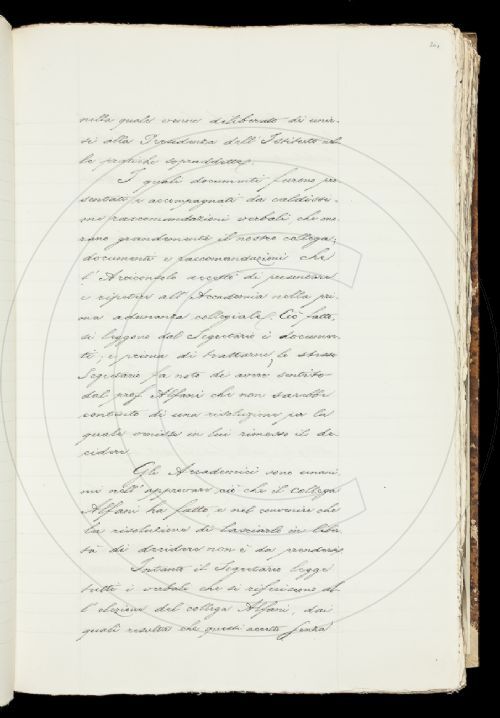 nella quale venne deliberato di unir-
si alla Presidenza dell'Istituto nel-
le pratiche sopraddette.
I quali documenti furono pre-
sentati e accompagnati da caldissi-
me raccomandazioni verbali, che ono-
rano grandemente il nostro collega;
documenti e raccomandazioni che
l'Arciconsolo accettò di presentare
e ripetere all'Accademia nella pri-
ma adunanza collegiale. Ciò fatto,
si leggono dal Segretario i documen-
ti; e prima di trattarne, lo stesso
Segretario fa noto di avere sentito
dal prof. Alfani che non sarebbe
contento di una risoluzione per la
quale venisse in lui rimesso il de-
cidere.
Gli Accademici sono unani-
mi nell'approvare ciò che il collega
Alfani ha fatto e nel convenire che
la risoluzione di lasciarlo in liber-
tà di decidere non è da prendersi.
Intanto il Segretario legge
tutti i verbali che si riferiscono al-
l'elezione del collega Alfani, dai
quali resulta che questi accettò senza